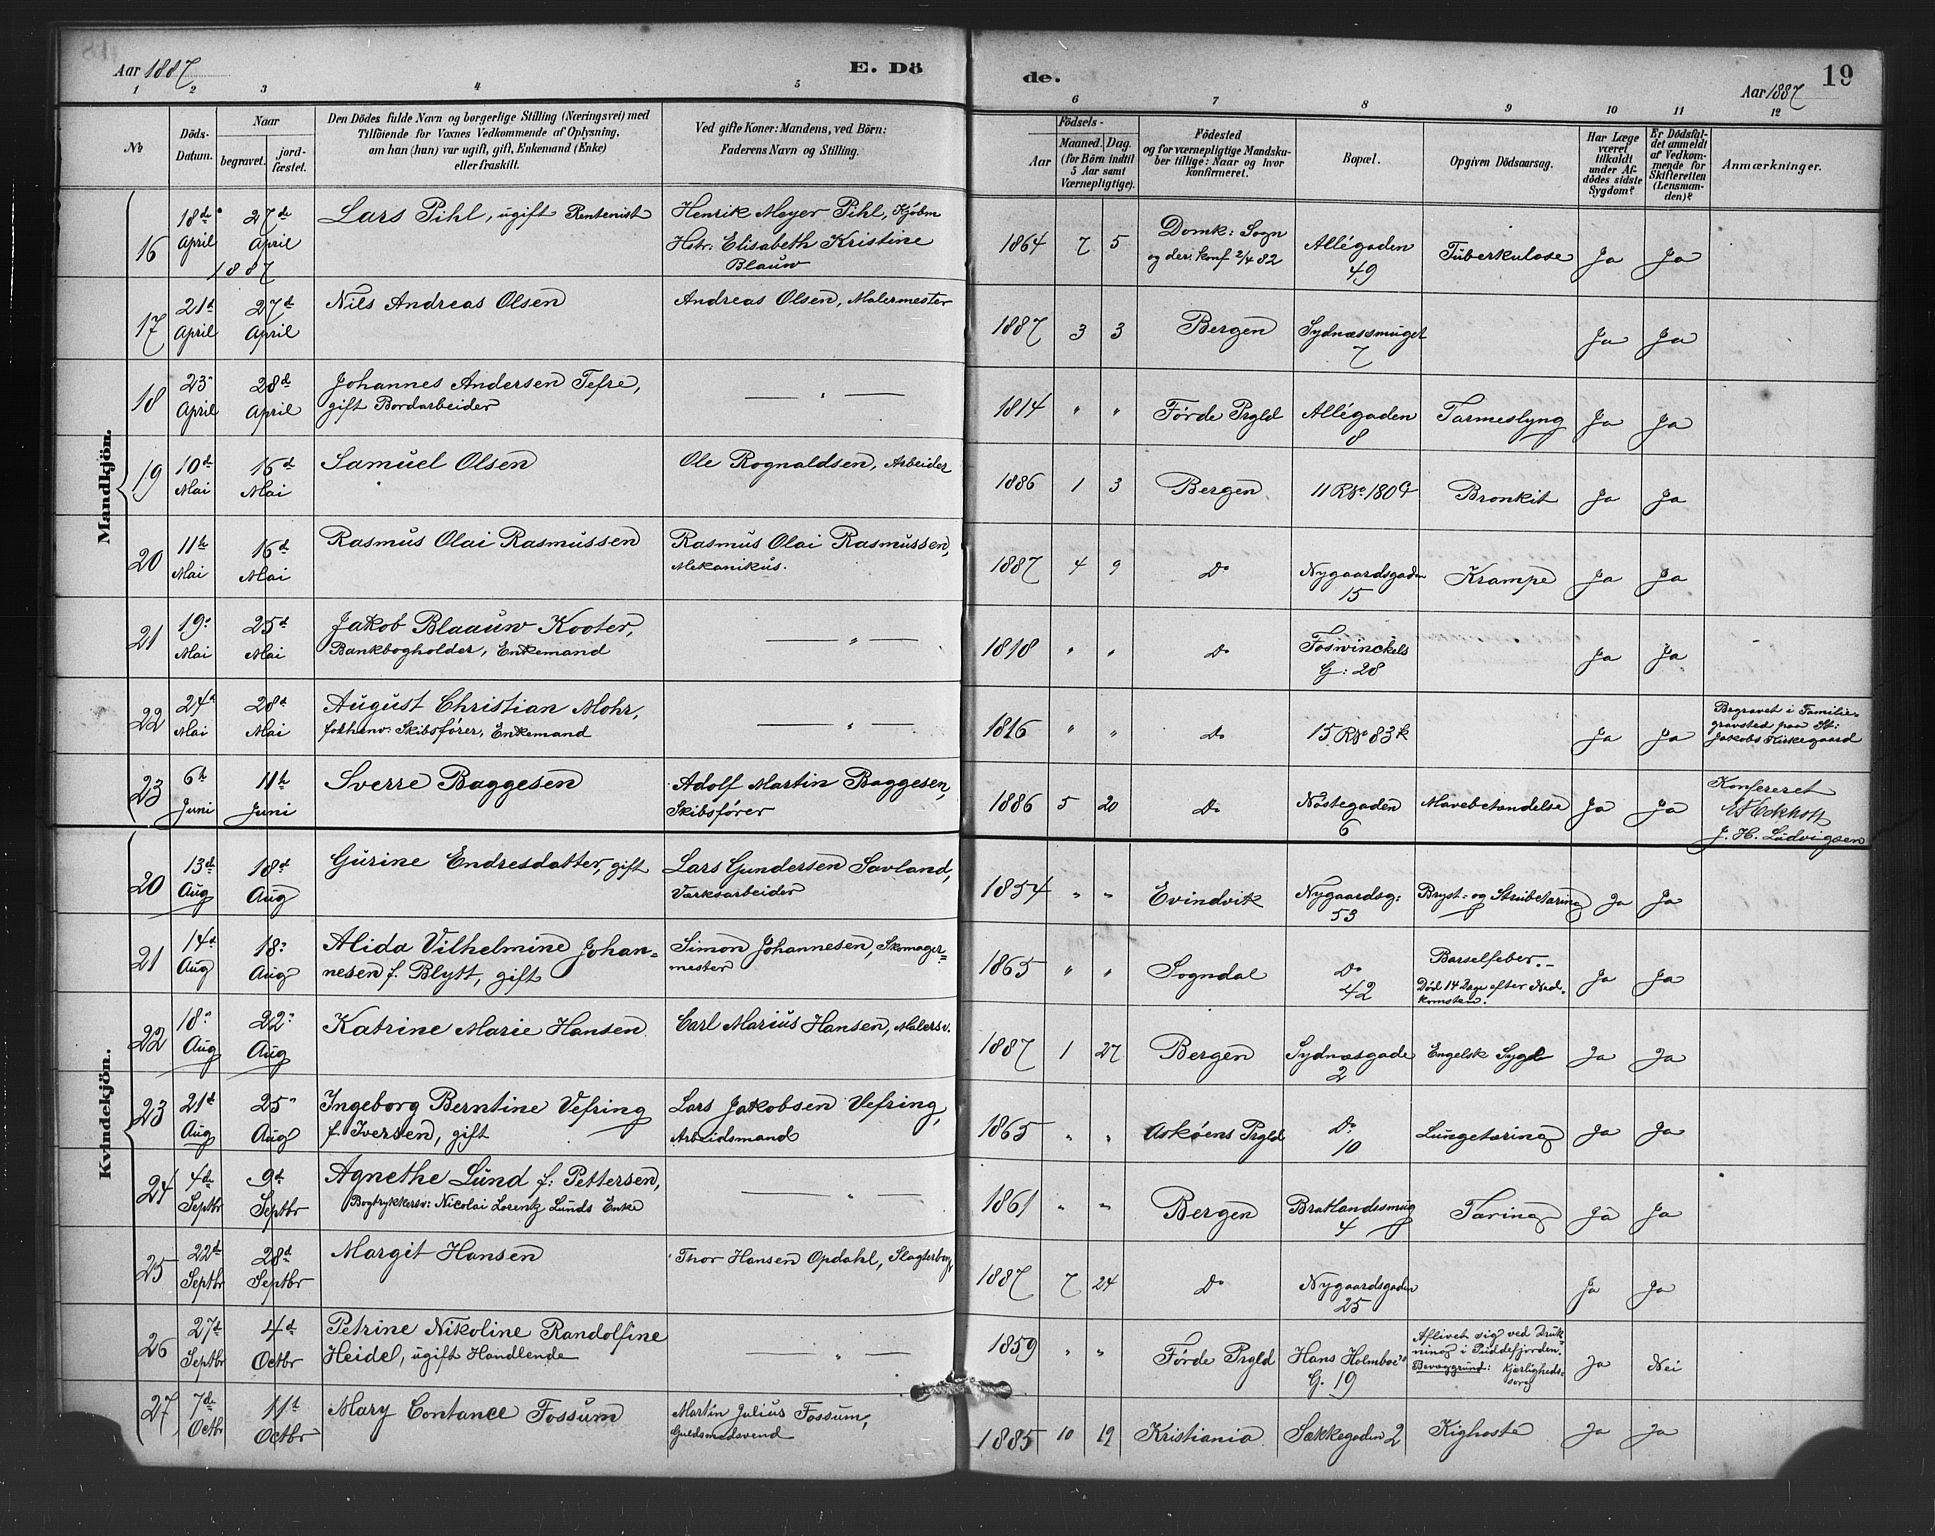 Aar 1887
E. Dö
de.
19
Aar 1887
1 2 3 4 5 6 7 8 9 10 11 12
№
Döds-
Datum.
Naar
begravet.
jord-
fæstet.
Den Dödes fulde Navn og borgerlige Stilling (Næringsvei) med
Tilföiende for Voxnes Vedkommende af Oplysning,
om han (hun) var ugift, gift, Enkemand (Enke)
eller fraskilt.
Ved gifte Koner: Mandens, ved Börn:
Faderens Navn og Stilling.
Födsels-
Aar
Maaned. Dag.
(for Börn indtil
5 Aar samt
Værnepligtige).
Födested
og for værnepligtige Mandska-
ber tillige: Naar og hvor
konfirmeret.
Bopæl.
Opgiven Dödsaarsag.
Har Læge
været
tilkaldt
under Af-
dödes sidste
Sygdom?
Er Dödsfal-
det anmeldt
af Vedkom-
mende for
Skifteretten
(Lensman-
den)?
Anmærkninger.
Mandkjön.
16 18de April 27de April 1887 Lars Pihl, ugift Rentenist Henrik Meyer Pihl, Kjöbm
Hstr: Elisabeth Kristine
Blauw
1864 7 5 Domk: Sogn
og der. konf 2/4 82 Allégaden
49 Tuberkulose Ja Ja
17 21d April 27de April Nils Andreas Olsen Andreas Olsen, Malermester 1887 3 3 Bergen Sydnæssmuget
7 Ja Ja
18 23" April 28d April Johannes Andersen Tefre,
gift Bordarbeider — " — 1814 " " Förde Prgld Allégaden
8 Tarmeslyng Ja Ja
19 10d Mai 16d Mai Samuel Olsen Ole Rognaldsen, Arbeider 1886 1 3 Bergen 11 R No 180 Bronkit Ja Ja
20 11te Mai 16d Mai Rasmus Olai Rasmussen Rasmus Olai Rasmussen,
Mekanikus. 1887 4 9 Do Nygaardsgaden
15 Krampe Ja Ja
21 19" Mai 25d Mai Jakob Blaauw Kooter,
Bankbogholder, Enkemand — " — 1818 " " Do Foswinckels
G: 28 Ja Ja
22 24d Mai 28d Mai August Christian Mohr,
forhenv: Skibsförer, Enkemand — " — 1816 " " Do 15 R No 83 k Ja Ja Begravet i Familie-
gravsted paa St:
Jakobs Kirkegaard
23 6te Juni 11te Juni Sverre Baggesen Adolf Martin Baggesen,
Skibsförer 1886 5 20 Do Nöstegaden
6 Mavebetændelse Ja Ja Konfereret
J. H. Ludvigsen
Kvindekjön.
20 13d Aug 18d Aug Gurine Endresdatter, gift Lars Gundersen Savland,
Værksarbeider 1854 " " Evindvik Nygaardsg:
53 Bryst- og Strubetæring Ja Ja
21 14d Aug 18" Aug Alida Vilhelmine Johan-
nesen f. Blytt, gift Simon Johannesen, Skomager-
mester 1865 " " Sogndal Do
42 Barselfeber. -
Död 14 Dage efter Ned-
komsten. Ja Ja
22 18" Aug 22" Aug Katrine Marie Hansen Carl Marius Hansen, Malersv. 1887 1 27 Bergen Sydnæsgade
2 Engelsk Syge Ja Ja
23 21d Aug 25" Aug Ingeborg Berntine Vefring
f. Iversen, gift Lars Jakobsen Vefring,
Arbeidsmand 1865 " " Asköens Prgld Do
10 Lungetæring Ja Ja
24 4de Septbr 9d Septbr Agnethe Lund f: Pettersen,
Bogtrykkersv: Nicolai Lorentz Lunds Enke — " — 1861 " " Bergen Bratlandssmug
4 Tæring Ja Ja
25 22de Septbr 28d Septbr Margit Hansen Thor Hansen Opdahl, 1887 7 24 Do Nygaardsgaden
25 Ja Ja
26 27d Septbr 4d Octbr Petrine Nikoline Randolfine
Heidel, ugift Handlende — " — 1859 " " Förde Prgld Hans Holmboes
G. 19 Aflivet sig ved Druk-
ning i Puddefjorden.
Bevæggrund: Kjærligheds-
sorg Ja Nei
27 7de Octbr 11te Octbr Mary Contance Fossum Martin Julius Fossum,
Guldsmedsvend 1885 10 19 Kristiania Sækkegaden 2 Kighoste Ja Ja